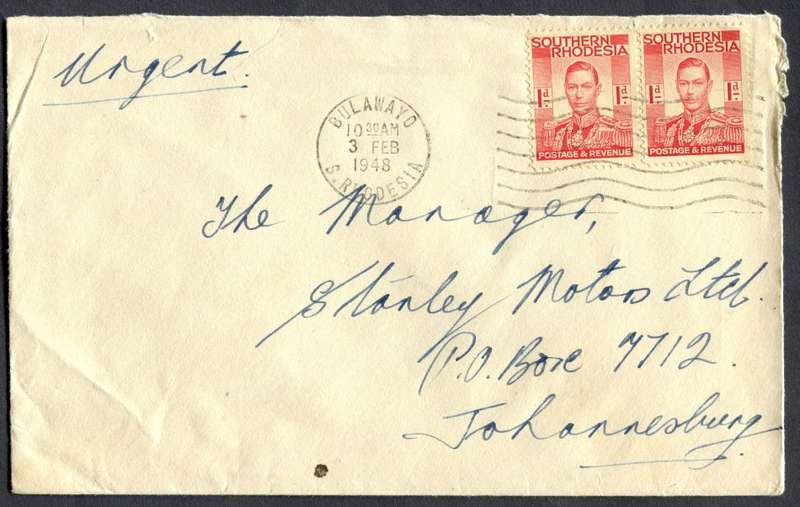 Urgent.
SOUTHERN
RHODESIA
1d 1d
POSTAGE & REVENUE
SOUTHERN
RHODESIA
1d 1d
POSTAGE & REVENUE
BULAWAYO
10 30 AM
3 FEB
1948
S. RHODESIA
The Manager,
Stanley Motors Ltd.
P.O. Box 7712.
Johannesburg